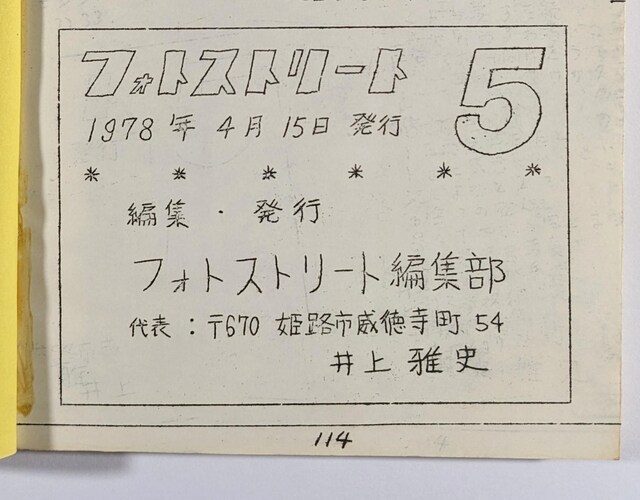 フォトストリート 5
1978年4月15日 発行
* * * * * *
編集・発行
フォトストリート編集部
代表：〒670 姫路市威徳寺町54
井上雅史
114